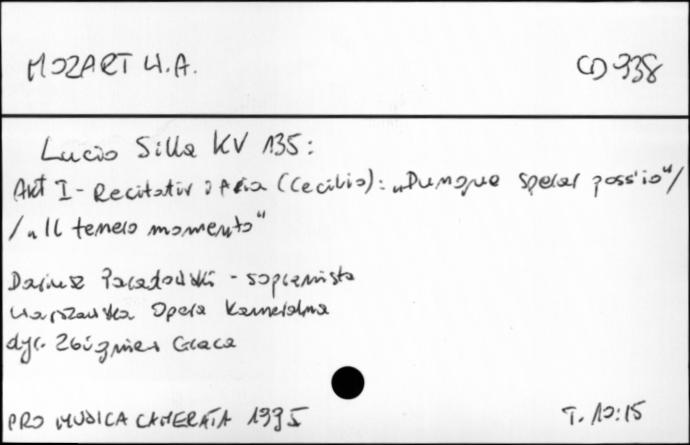 MOZART W.A.
CD 938
Lucio Silla KV 135:
Akt I - Recitativ i Aria (Cecilio): „Dunque sperar poss'io"/
/„Il tenero momento"
Dariusz Paradowski - sopranista
Warszawska Opera Kameralna
dyr. Zbigniew Graca
PRO MUSICA CAMERATA 1995
T. 10:15